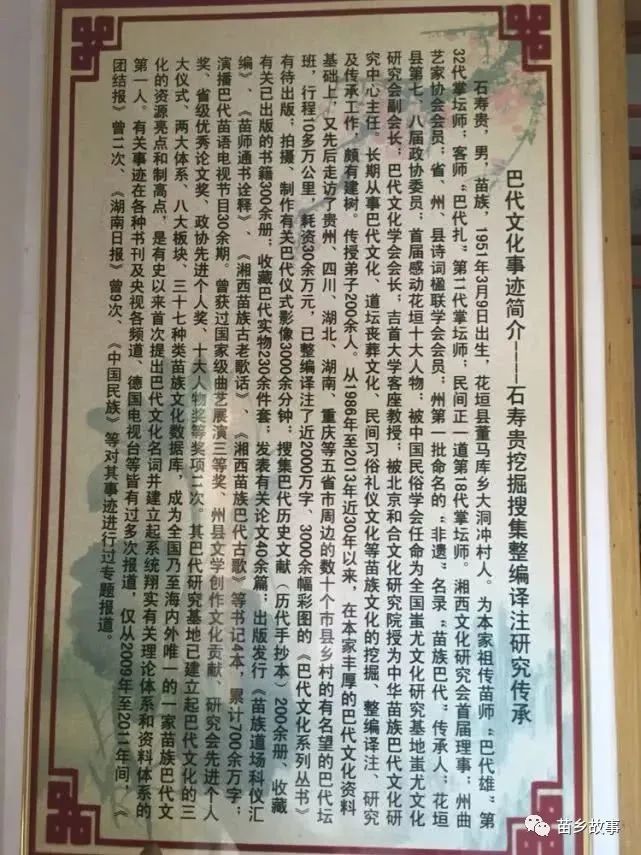 巴代文化事迹简介——石寿贵挖掘搜集整编译注研究传承
石寿贵，男，苗族，1951年3月9日出生，花垣县董马库乡大洞冲村人。为本家祖传苗师“巴代雄”第
32代掌坛师；客师“巴代扎”第二代掌坛师；民间正一道第18代掌坛师。湘西文化研究会首届理事；州曲
艺家协会会员；省、州、县诗词楹联学会会员；州第一批命名的“非遗”名录“苗族巴代”传承人；花垣
县第七、八届政协委员；首届感动花垣十大人物；被中国民俗学会任命为全国蚩尤文化研究基地蚩尤文化
研究会副会长；巴代文化学会会长；吉首大学客座教授；被北京和合文化研究院授为中华苗族巴代文化研
究中心主任。长期从事巴代文化、道坛丧葬文化、民间习俗礼仪文化等苗族文化的挖掘、整编译注、研究
及传承工作，颇有建树。传授弟子200余人。从1986年至2013年近30年以来，在本家丰厚的巴代文化资料
基础上，又先后走访了贵州、四川、湖北、湖南、重庆等五省市周边的数十个市县乡村的有名望的巴代坛
班，行程10多万公里，耗资30余万元，已整编译注了近2000万字、3000余幅彩图的《巴代文化系列丛书》
有待出版；拍摄、制作有关巴代仪式影像3000余分钟；搜集巴代历史文献（历代手抄本）200余册、收藏
有关已出版的书籍300余册；收藏巴代实物230余件套；发表有关论文40余篇；出版发行《苗族道场科仪汇
编》、《苗师通书诠释》、《湘西苗族古老歌话》、《湘西苗族巴代古歌》等书记4本，累计700余万字；
演播巴代苗语电视节目30余期。曾获过国家级曲艺展演三等奖、州县文学创作文化贡献、研究会先进个人
奖、省级优秀论文奖、政协先进个人奖、十大人物奖等奖项11次。其巴代研究基地已建立起巴代文化的三
大仪式、两大体系、八大板块、三十七种类苗族文化数据库，成为全国乃至海内外唯一的一家苗族巴代文
化的资源亮点和制高点，是有史以来首次提出巴代文化名词并建立起系统翔实有关理论体系和资料体系的
第一人。有关事迹在各种书刊及央视各频道、德国电视台等皆有过多次报道，仅从2009年至2011年间，《
团结报》曾11次、《湖南日报》曾9次、《中国民族》等对其事迹进行过专题报道。
苗乡故事